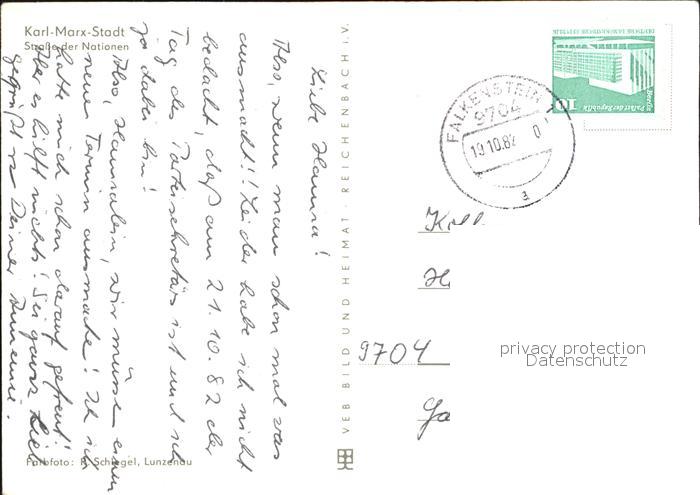 Karl-Marx-Stadt
Straße der Nationen
Liebe Hanna!
Also, wenn man schon mal was
ausmacht!! Leider habe ich nicht
bedacht, daß am 21.10.82 der
Tag des Parteisekretärs ist und ich
ja dabei bin!
Also, Hannalein, wir müssen einen
neuen Termin ausmachen! Ich
hatte mich schon darauf gefreut!
Aber es hilft nichts! Sei ganz lieb
gegrüßt v. Deiner
Farbfoto: R. Schlegel, Lunzenau
VEB BILD UND HEIMAT · REICHENBACH i. V.
FALKENSTEIN
9704
19.10.82
a
DEUTSCHE DEMOKRATISCHE REPUBLIK
Palast der Republik
Berlin
10
9704
privacy protection
Datenschutz